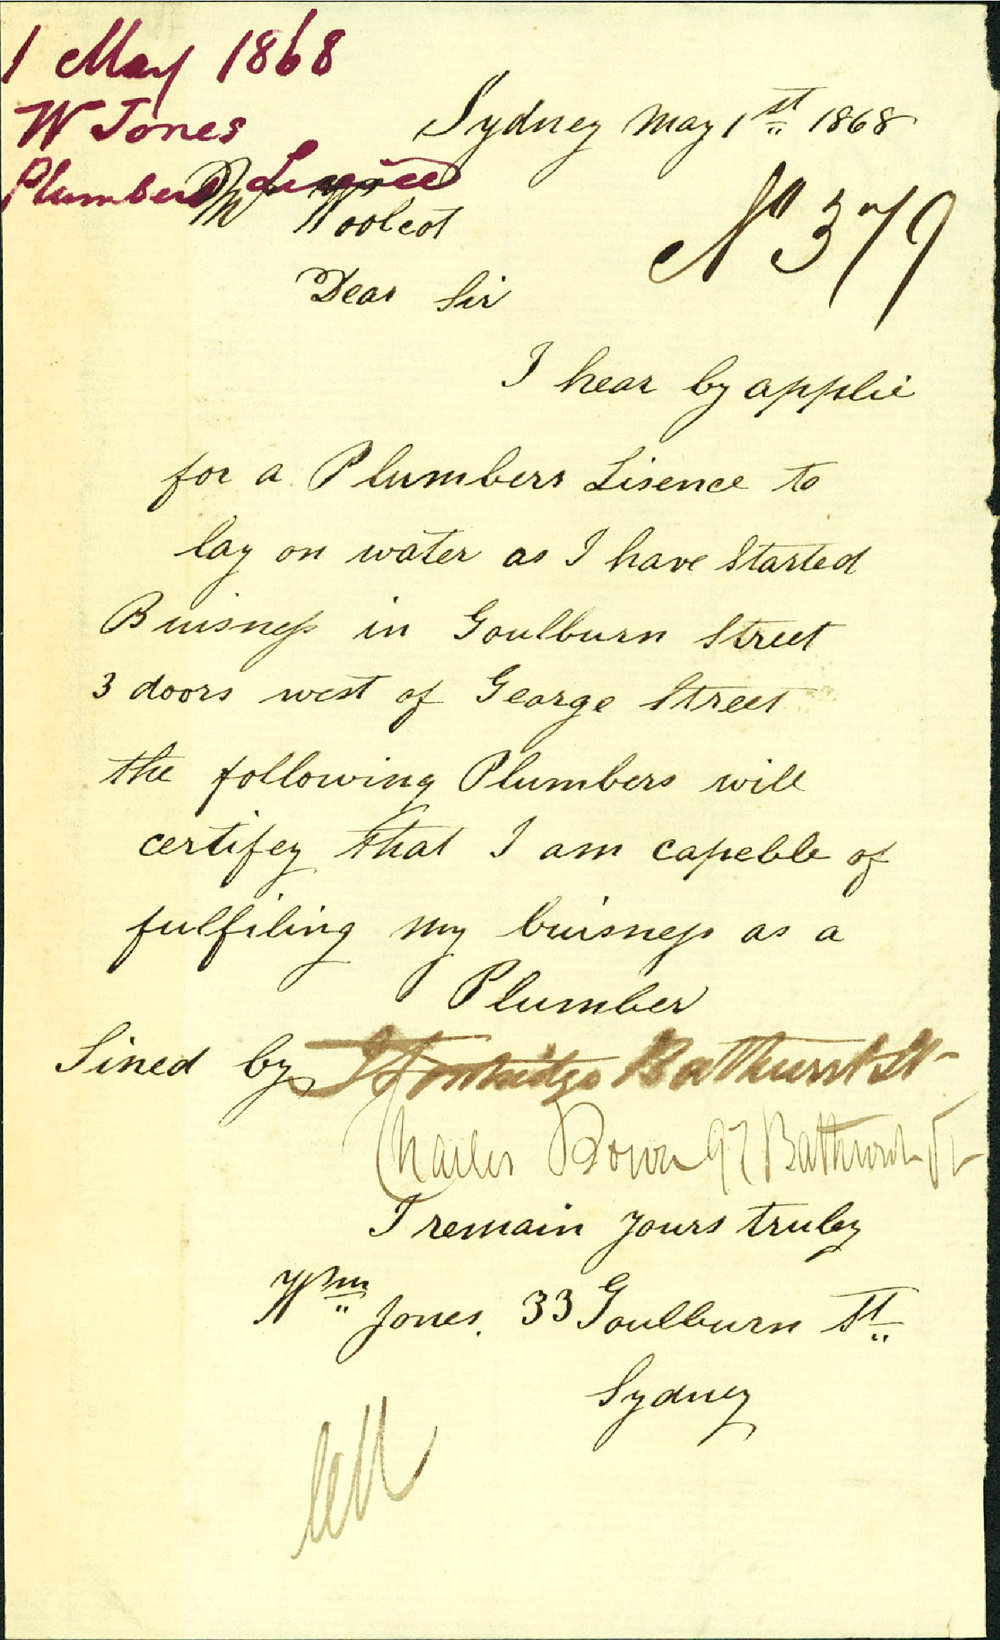 1 May 1868
W Jones
Plumbers
Sydney May 1st 1868
No 379
Mr Woolcot
Dear Sir
I hear by applie
for a Plumbers Lisence to
lay on water as I have Started
Buisness in Goulburn Street
3 doors west of George Street
the following Plumbers will
certifey that I am capeble of
fulfiling my buisness as a
Plumber
Sined by Bathurst St
Charles Bown 97 Bathurst St
I remain yours truley
Wm Jones. 33 Goulburn St
Sydney